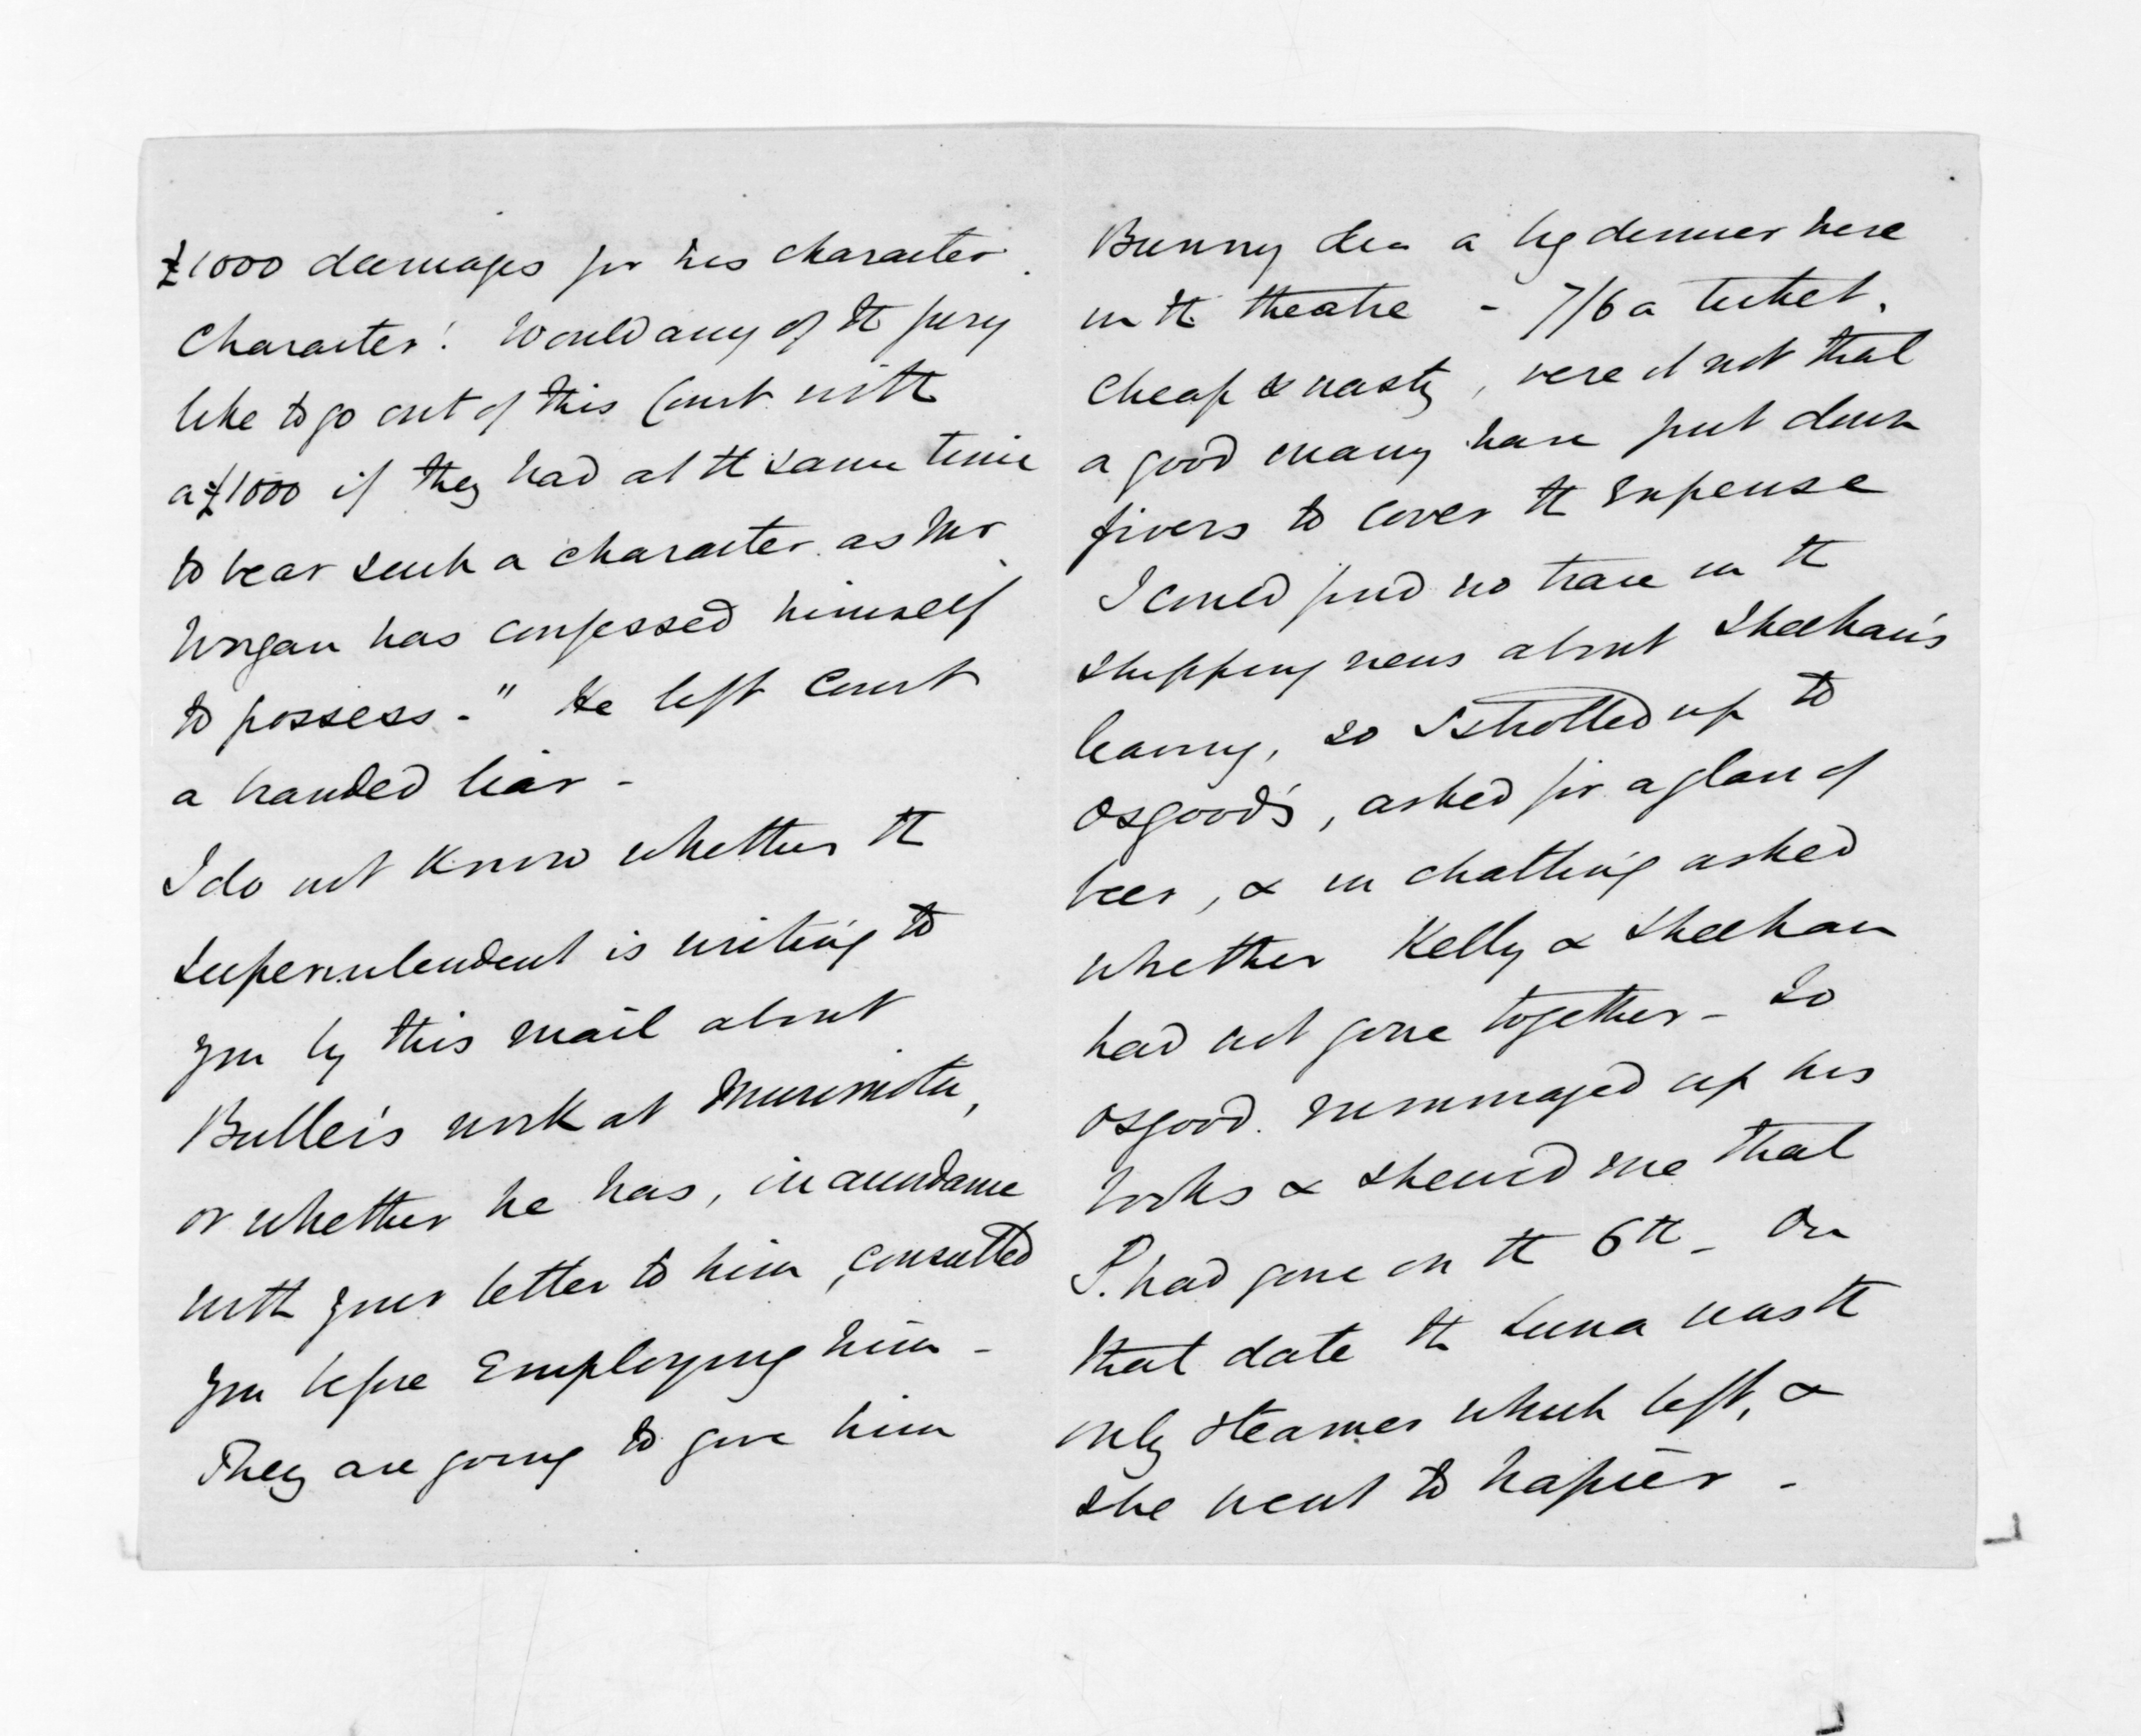 £1000 damages for his character.
Character! Would any of the jury
like to go out of this Court with
a £1000 if they had at the same time
to bear such a character as Mr
Worgan has confessed himself
to possess." He left Court
a branded liar -
I do not know whether the
Superintendent is writing to
you by this mail about
Buller's work at Murimotu,
or whether he has, in accordance
with your letter to him, consulted
you before Employing him -
They are going to give him
Bunny a big dinner here
in the theatre - 7/6 a ticket.
Cheap & nasty, were it not that
a good many have put down
fivers to cover the Expense
I could find no trace in the
shipping news about Sheehan's
leaving, so I strolled up to
Osgood's, asked for a glass of
beer, & in chatting asked
whether Kelly & Sheehan
had not gone together - So
Osgood rummaged up his
books & shewed me that
S. had gone on the 6th - On
that date the Luna was the
only steamer which left, &
she went to Napier -